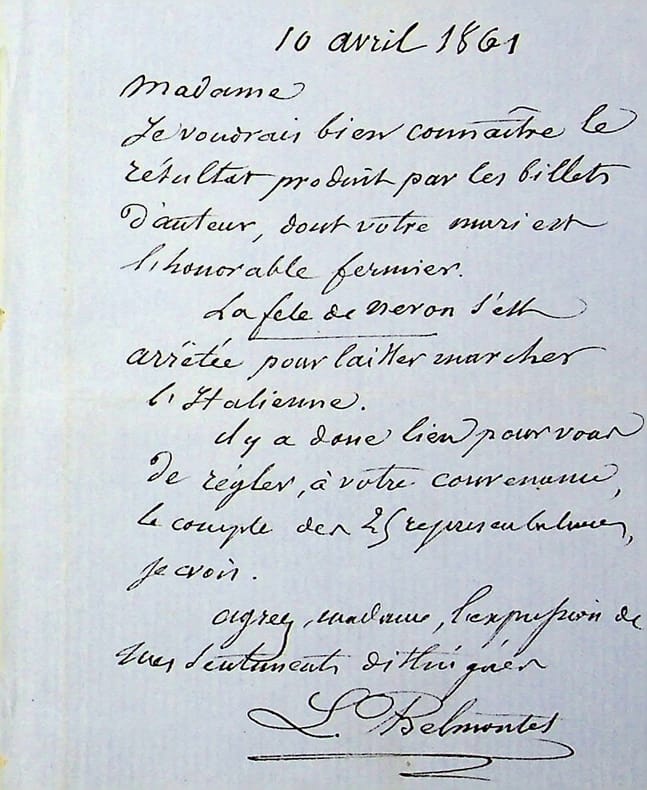 10 avril 1861
Madame
Je voudrais bien connaître le
résultat produit par les billets
d'auteur, dont votre mari est
l'honorable fermier.
La fete de Neron s'est
arrêtée pour laisser marcher
l'Italienne.
il y a donc lieu pour vous
de régler, à votre convenance,
le compte des 25 representations,
je crois.
agreez, madame, l'expression de
mes sentiments distingués
L. Belmontet